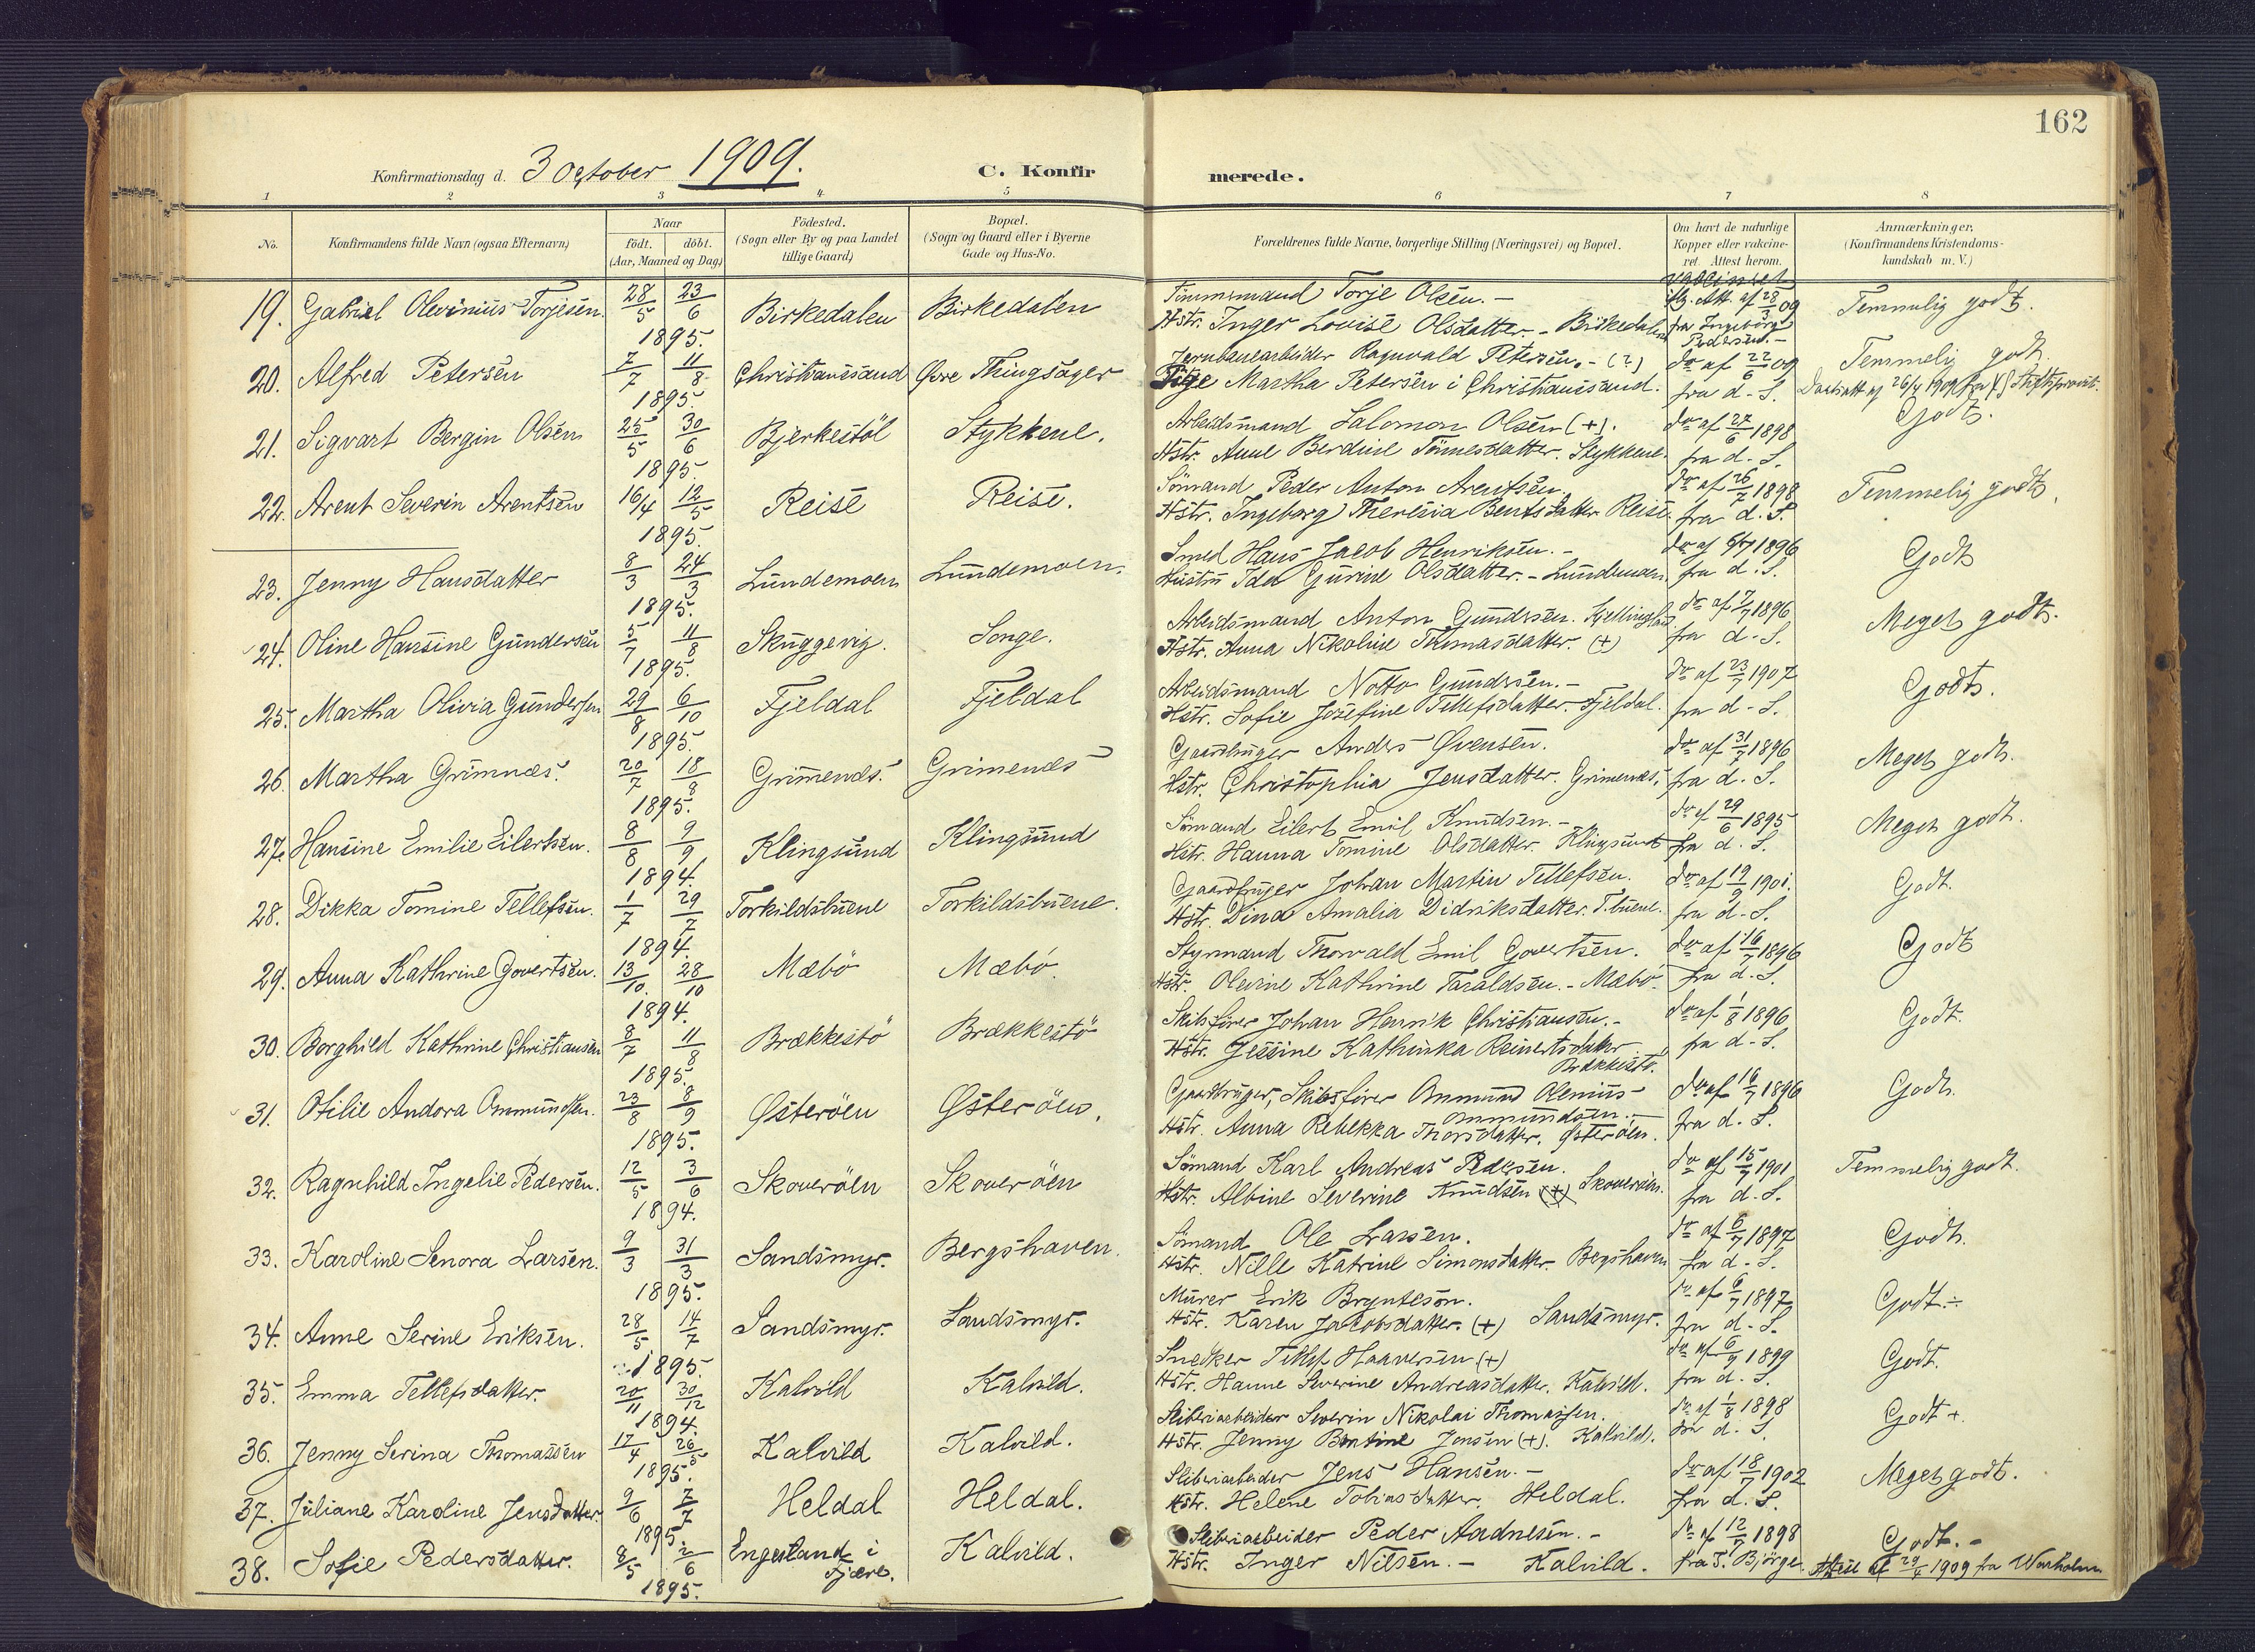 162
Konfirmationsdag d. 3 October 1909. C. Konfir merede.
1 2 3 4 5 6 7 8
No. Konfirmandens fulde Navn (ogsaa Efternavn) Naar födt. döbt. (Aar, Maaned og Dag) Födested. (Sogn eller By og paa Landet tillige Gaard) Bopæl. (Sogn og Gaard eller i Byerne Gade og Hus-No. Forældrenes fulde Navne, borgerlige Stilling (Næringsvei) og Bopæl. Om havt de naturlige Kopper eller vakcineret. Attest herom. Anmærkninger, (Konfirmandens Kristendomskundskab m. V.)
19. Gabriel Olevinius Torjesen. 28/5 23/6 1895. Birkedalen Birkedalen Tömmermand Torje Olsen. – vaccineret flg. Att. af 28/3 09 Temmelig godt.
Hstr. Inger Lovise Olsdatter. – Birkedalen fra Ingeborg Pedersen. –
20. Alfred Petersen 7/7 11/8 1895. Christianssand Øvre Thingsager Jernbanearbeider Ragnvald Petersen. – (?) do af 22/6 09 Temmelig godt.
Pige Martha Petersen i Christianssand. fra d. S. Daabsatt af 26/4 1909 fra Stiftsprovst.
21. Sigvart Bergin Olsen 25/5 30/6 1895. Bjerkestöl Stykkene. Arbeidsmand Salomon Olsen (+). do af 27/6 1898 Godt.
Hstr. Anne Berdine Tönnesdatter. Stykkene. fra d. S.
22. Arent Severin Arentsen 16/4 12/5 1895. Reise Reise. Sömand Peder Anton Arentsen. do af 26/7 1898 Temmelig godt.
Hstr. Ingeborg Theresia Bentsdatter Reise. fra d. S.
23. Jenny Hansdatter 8/3 24/3 1895. Lundemoen Lundemoen. Smed Hans Jacob Henriksen. – do af 6/7 1896 Godt
Hustru Ida Gurine Olsdatter. – Lundemoen. fra d. S.
24. Oline Hansine Gundersen 5/7 11/8 1895. Skuggevig. Songe. Arbeidsmand Anton Gundersen. do af 7/7 1896 Meget godt.
Hstr. Anna Nikoline Thomasdatter. (+) fra d. S.
25. Martha Olivia Gundersen 29/8 6/10 1895. Fjeldal Fjeldal Arbeidsmand Notto Gundersen. – do af 23/7 1907 Godt.
Hstr. Sofie Josefine Tellefsdatter. Fjeldal. fra d. S.
26. Martha Grimnæs. 20/7 18/8 1895. Grimenæs. Grimenæs Gaardbruger Anders Svensen. do af 31/7 1896 Meget godt.
Hstr. Christophia Jensdatter. Grimenæs. fra d. S.
27. Hansine Emilie Eilertsen. 8/8 9/9 1894. Klingsund Klingsund Sömand Eilert Emil Knudsen. – do af 29/6 1895 Meget godt.
Hstr. Hanna Tomine Olsdatter. Klingsund fra d. S.
28. Dikka Tomine Tellefsen. 1/7 29/7 1894. Torkildsbuene Torkildsbuene. Gaardbruger Johan Martin Tellefsen. do af 19/9 1901. Godt.
Hstr. Dina Amalia Didriksdatter. T.buene. fra d. S.
29. Anna Kathrine Govertsen. 13/10. 28/10 1894. Mæbö Mæbö. Styrmand Thorvald Emil Govertsen. do af 16/7 1896 Godt
Hstr. Olevine Kathrine Taraldsen. – Mæbö. fra d. S.
30. Borghild Kathrine Christiansen 8/7 11/8 1895. Brækkestö Brækkestö Skibsförer Johan Henrik Christiansen. – do af 1/8 1896 Godt.
Hstr. Jessine Kathinka Reinertsdatter Brækkestö. fra d. S.
31. Otilie Andora Ommundsen. 23/8 8/9 1895. Østeröen Østeröen. Gaardbruger, Skibsförer Ommund Olenius Ommundsen. – do af 16/7 1896 Godt.
Hstr. Anna Rebekka Thorsdatter. Østeröen. fra d. S.
32. Ragnhild Ingelie Pedersen. 12/5 3/6 1894. Skoveröen Skoveröen Sömand Karl Andreas Pedersen. do af 15/7 1901 Temmelig godt.
Hstr. Albine Severine Knudsen (+) Skoveröen. fra d. S.
33. Karoline Senora Larsen. 9/3 31/3 1895. Sandsmyr. Bergshaven. Sömand Ole Larsen. do af 6/7 1897 Godt.
Hstr. Nille Katrine Simonsdatter. Bergshaven fra d. S.
34. Anne Serine Eriksen. 28/5 14/7 1895. Sandsmyr. Sandsmyr. Murer Erik Brynteson. do af 6/7 1897 Godt ÷
Hstr. Karen Jacobsdatter. (+) Sandsmyr. fra d. S.
35. Emma Tellefsdatter. 20/11 30/12 1894. Kalvild Kalvild. Snedker Tellef Haaversen (+) do af 6/7 1899 Godt.
Hstr. Hanne Severine Andreasdatter. Kalvild. fra d. S.
36. Jenny Serina Thomassen 17/4 26/5 1895. Kalvild Kalvild. Sliberiarbeider Severin Nikolai Thomassen. do af 1/8 1898 Godt +.
Hstr. Jenny Bentine Jensen (+). Kalvild. fra d. S.
37. Juliane Karoline Jensdatter. 9/6 7/7 1895. Heldal Heldal. Sliberiarbeider Jens Hansen. – do af 18/7 1902 Meget godt.
Hstr. Helene Tobiasdatter. Heldal. fra d. S.
38. Sofie Pedersdatter. 8/5 2/6 1895. Engesland i Fjære. Kalvild. Sliberiarbeider Peder Aadnesen. – do af 12/7 1898 Godt. –
Hstr. Inger Nilsen. – Kalvild. fra T. Björge. Attest af 29/4 1909 fra Warholm.